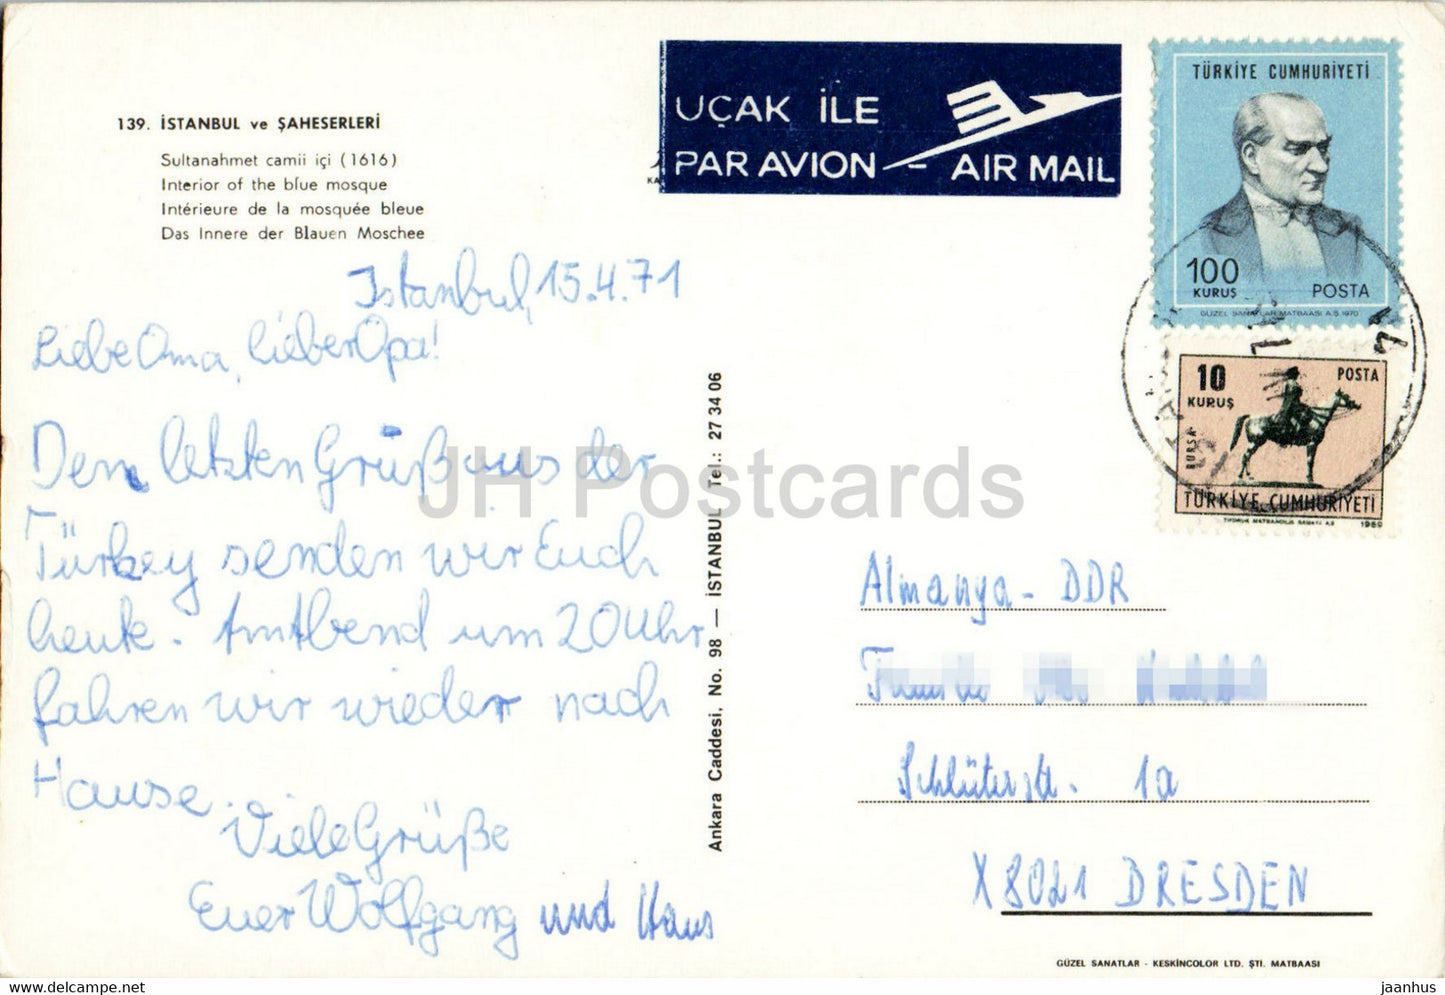 139. İSTANBUL ve ŞAHESERLERİ
Sultanahmet camii içi (1616)
Interior of the blue mosque
Intérieure de la mosquée bleue
Das Innere der Blauen Moschee
UÇAK İLE
PAR AVION - AIR MAIL
TÜRKİYE CUMHURİYETİ
100
KURUŞ
POSTA
GÜZEL SANATLAR MATBAASI A.S. 1970
10
KURUŞ
POSTA
BURSA
TÜRKİYE CUMHURİYETİ
1969
Istanbul, 15.4.71
Liebe Oma, lieber Opa!
Den letzten Gruß aus der
Türkey senden wir Euch
heute. Am Abend um 20 Uhr
fahren wir wieder nach
Hause.
Viele Grüße
Euer Wolfgang und Haus
Ankara Caddesi, No. 98 — İSTANBUL Tel.: 27 34 06
JH Postcards
Almanya - DDR
Schlüterstr. 1a
X 8021 DRESDEN
GÜZEL SANATLAR - KESKİNCOLOR LTD. ŞTİ. MATBAASI
jaanhus